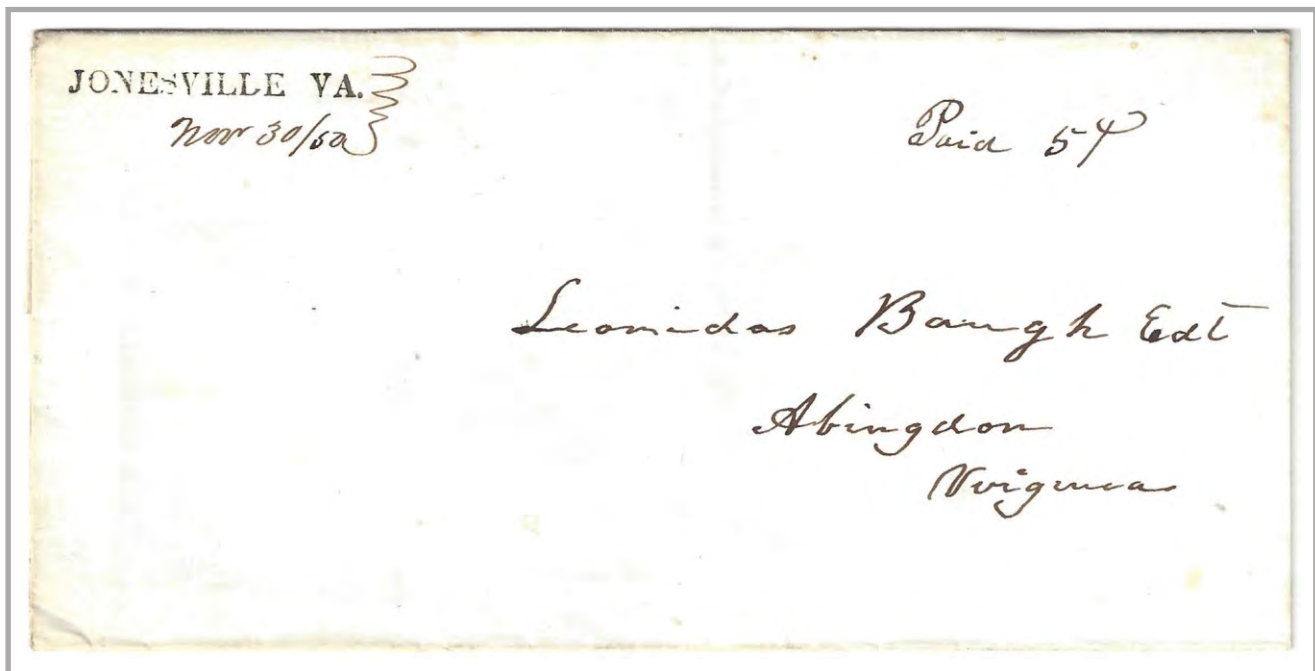 JONESVILLE VA.
Nov 30/50
Paid 5
Leonidas Baugh Edt
Abingdon
Virginia